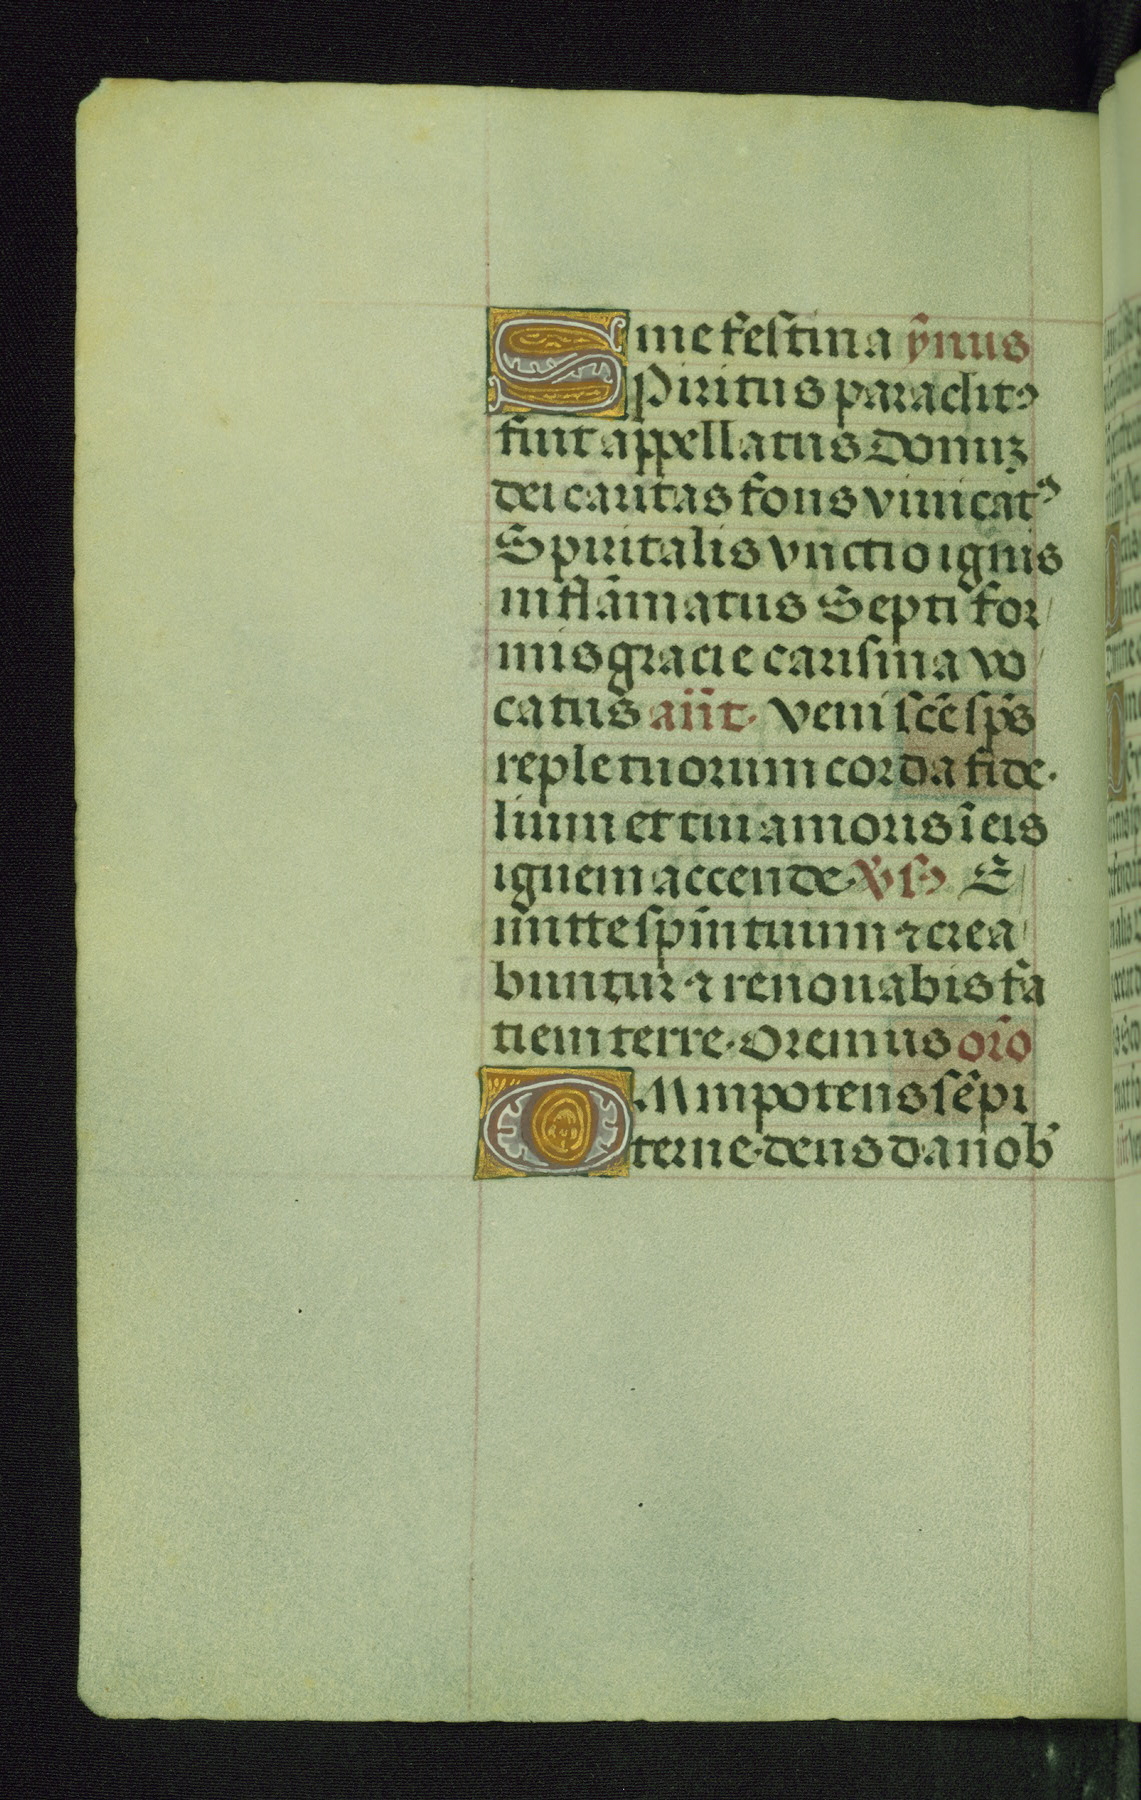 me festina ỹnus
SPiritus paraclitꝰ
fuit appellatus Donuʒ
dei caritas fons viuicatꝰ
Spiritalis vnctio ignis
inflāmatus Septifor/
mis gracie carisma vo/
catus añt. Veni scē sp̄s
reple tuorum corda fide.
lium et tui amoris ī eis
ignem accende. V̾sꝰ E/
mitte sp̄m tuum ⁊ crea/
buntur ⁊ renouabis fa
tiem terre. Oremus or̄o
OMnipotens sēpi
terne. deus da nob̾